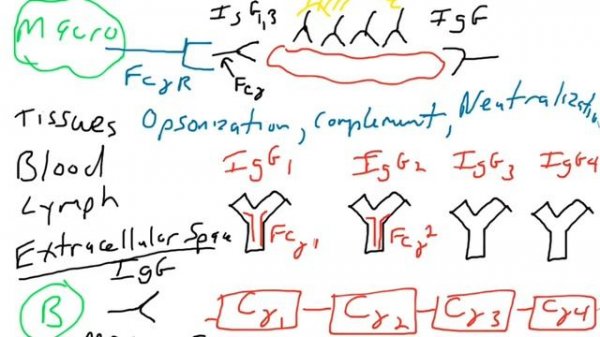 Macro
IgG1,3
IgG
FcγR
Fcγ
Tissues
Opsonization, Complement,
Blood
Lymph
Extracellular
IgG1 IgG2 IgG3 IgG4
Fcγ1 Fcγ2
IgG
B
Cγ1 Cγ2 Cγ3 Cγ4